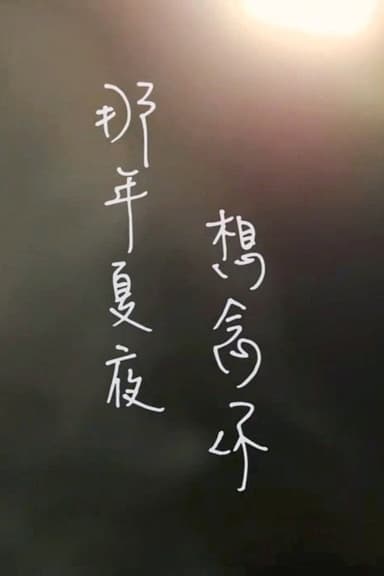 那年夏夜
想念